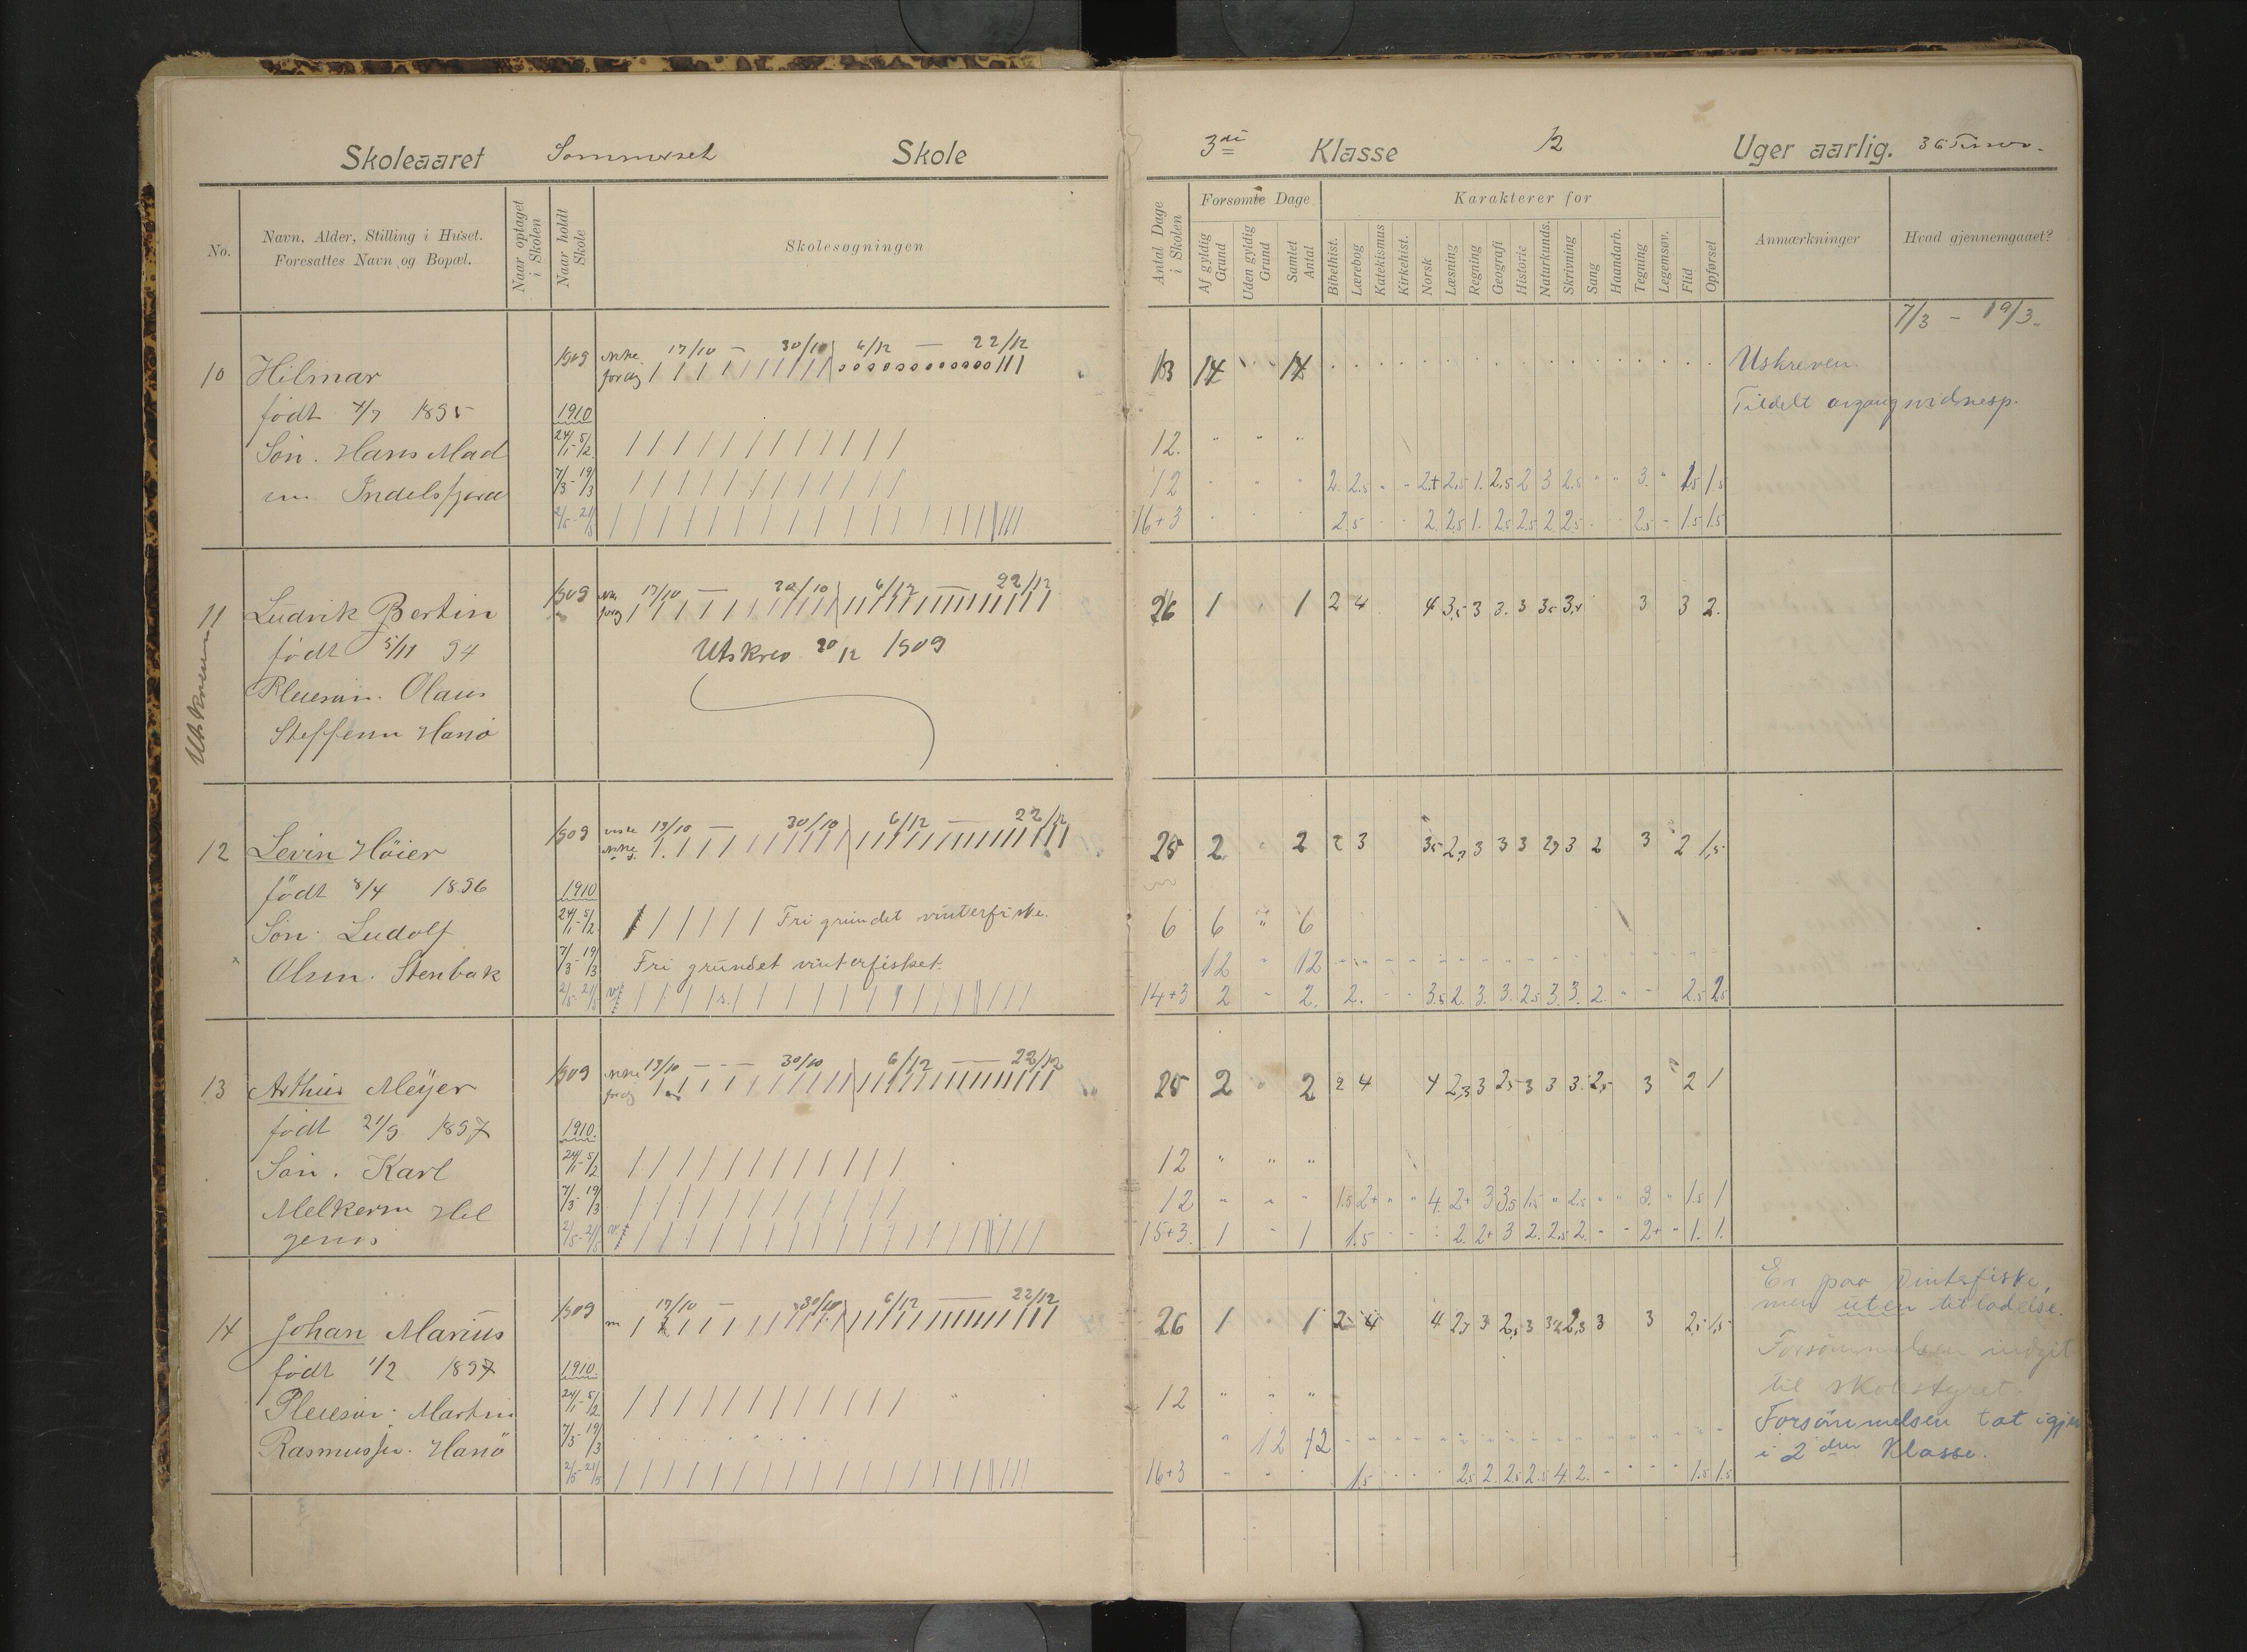 Skoleaaret Sommerset Skole
3die Klasse 12 Uger aarlig. 36 Timer.
No.
Navn, Alder, Stilling i Huset.
Foresattes Navn og Bopæl.
Naar optaget i Skolen
Naar holdt Skole
Skolesøgningen
Antal Dage i Skolen
Forsømte Dage
Af gyldig Grund
Uden gyldig Grund
Samlet Antal
Karakterer for
Bibelhist.
Lærebog
Katekismus
Kirkehist.
Norsk
Læsning
Regning
Geografi
Historie
Naturkunds.
Skrivning
Sang
Haandarb.
Tegning
Legemsøv.
Flid
Opførsel
Anmærkninger
Hvad gjennemgaaet?
7/3 - 19/3.
10 Hilmar 1909 17/10 — 30/10 6/12 — 22/12 13 14 14 Uskreven
født 4/7 1895 1910 Tildelt
Søn. Hans Mad 24/1-5/2 12.
Indelsfjord 7/3-19/3 12 2. 2.5 2+ 2.5 1. 2.5 2 3 2.5 3. 1.5 1.5
2/5-21/5 16+3 2.5 2. 2.5 1. 2.5 2.5 2 2.5 2.5 1.5 1.5
Utskreven
11 Ludvik Bertin 1909 17/10 — 30/10 6/12 — 22/12 26 1 1 2 4 4 3,5 3 3. 3 3.5 3,4 3 3 2.
født 5/11 94 Utskrev 20/12 1909
Pleiesøn. Olaus
Steffensen Hanø
12 Levin Höier 1909 13/10 — 30/10 6/12 — 22/12 25 2 2 2 3 3.5 2,3 3 3 3 2,3 3 2 3 2 1,5
født 8/4 1896 1910
Søn. Ludolf 24/1-5/2 Fri grundet vinterfiske. 6 6 6
Olsen. Stenbak 7/3-19/3 Fri grundet vinterfisket. 12 12
2/5-21/5 14+3 2 2. 2. 3.5 2. 3. 3. 2.5 3. 3. 2. 2.5 2.5
13 Arthur Meÿer 1909 13/10 - - - 30/10 6/12 — 22/12 25 2 2 2 4 4 2,3 3 2.5 3 3 3. 2,5 3 2 1
født 21/9 1897 1910.
Søn. Karl 24/1-5/2 12
Melkersen Hel 7/3-19/3 12 1.5 2+ 4. 2+ 3 3.5 1.5 2.5 3. 1.5 1
genes 2/5-21/5 15+3. 1 1 1.5 2. 2+ 3 2. 2.5 2. 2+ 1. 1.
14 Johan Marius 1909 17/10 — 30/10 6/12 — 22/12 26 1 1 2 4 4 3 3 3 3
født 1/2 1897 1910.
Pleiesøn. Martin 24/1-5/2 12
Rasmussen. Hanø 7/3-19/3 12 12
2/5-21/5 16+3 1.5 2.5 2. 2.5 2.5 4. 2. 1.5 1.5
Er paa vinterfiske,
men uten tilladelse.
Forsømmelsen indgit
til skolestyret.
Forsømmelsen tat igjen
i 2den Klasse.